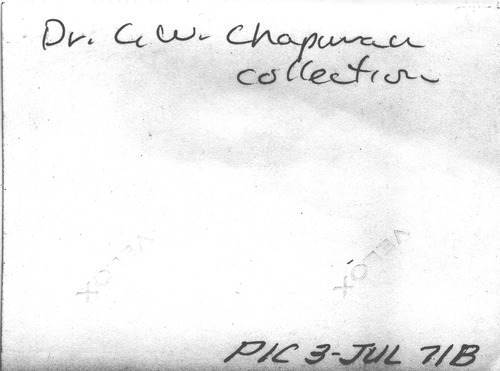 Dr. G.W. Chapman
collection
VELOX
VELOX
PIC 3-JUL 71B